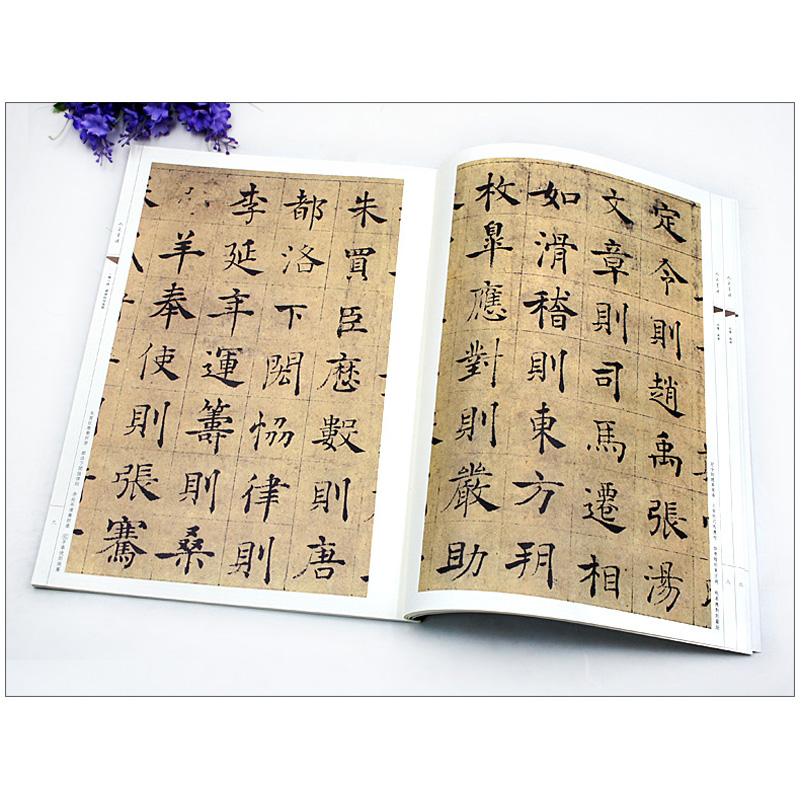 定令則趙禹張湯
文章則司馬遷相
如滑稽則東方朔
枚皐應對則嚴助
朱買臣厯數則唐
都洛下閎恊律則
李延年運籌則桑
羊奉使則張騫